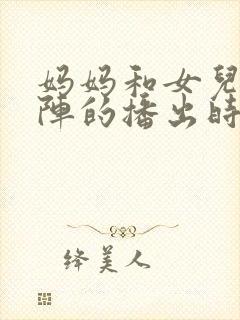 妈妈和女兒
陣的播出時
绛美人